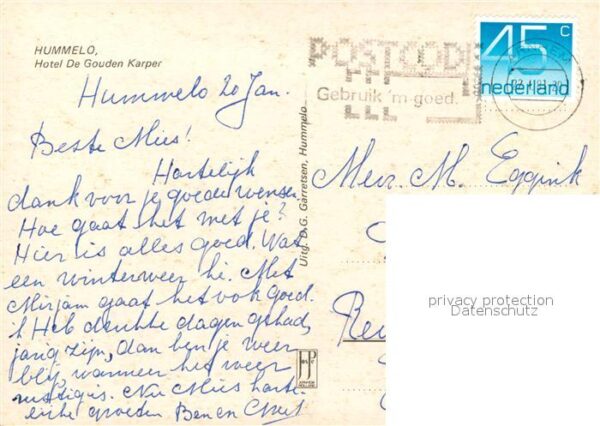 HUMMELO,
Hotel De Gouden Karper
POSTCODE
Gebruik 'm goed.
45 c
nederland
Hummelo 20 Jan.
Beste Mies!
Hartelijk
dank voor je goede wensen
Hoe gaat het met je?
Hier is alles goed. Wat
een winterweer hè. Met
Mirjam gaat het ook goed.
Heb drukke dagen gehad,
jarig zijn, dan ben je weer
blij, wanneer het weer
rustig is. Nu Mies harte-
lijke groeten Ben en
Uitg. D.G. Garretsen, Hummelo
Mevr. M. Eggink
privacy protection
Datenschutz